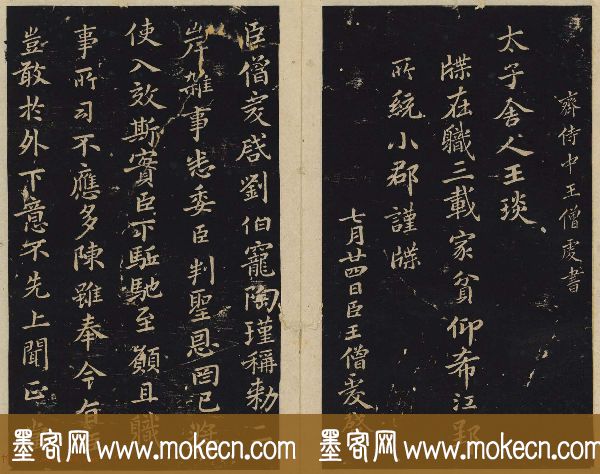 齊侍中王僧虔書
太子舍人王琰
牒在職三載家貧仰希江郢
所統小郡謹牒
七月廿四日臣王僧虔啓
臣僧虔啓劉伯寵陶瑾稱勑
岸雜事悉委臣判聖恩罔已
使入效斯賓臣下駈馳至願且職
事所司不應多陳雖奉今旨
豈敢於外下意不先上聞
墨客网 www.mokecn.com 墨客网 www.mokecn.com